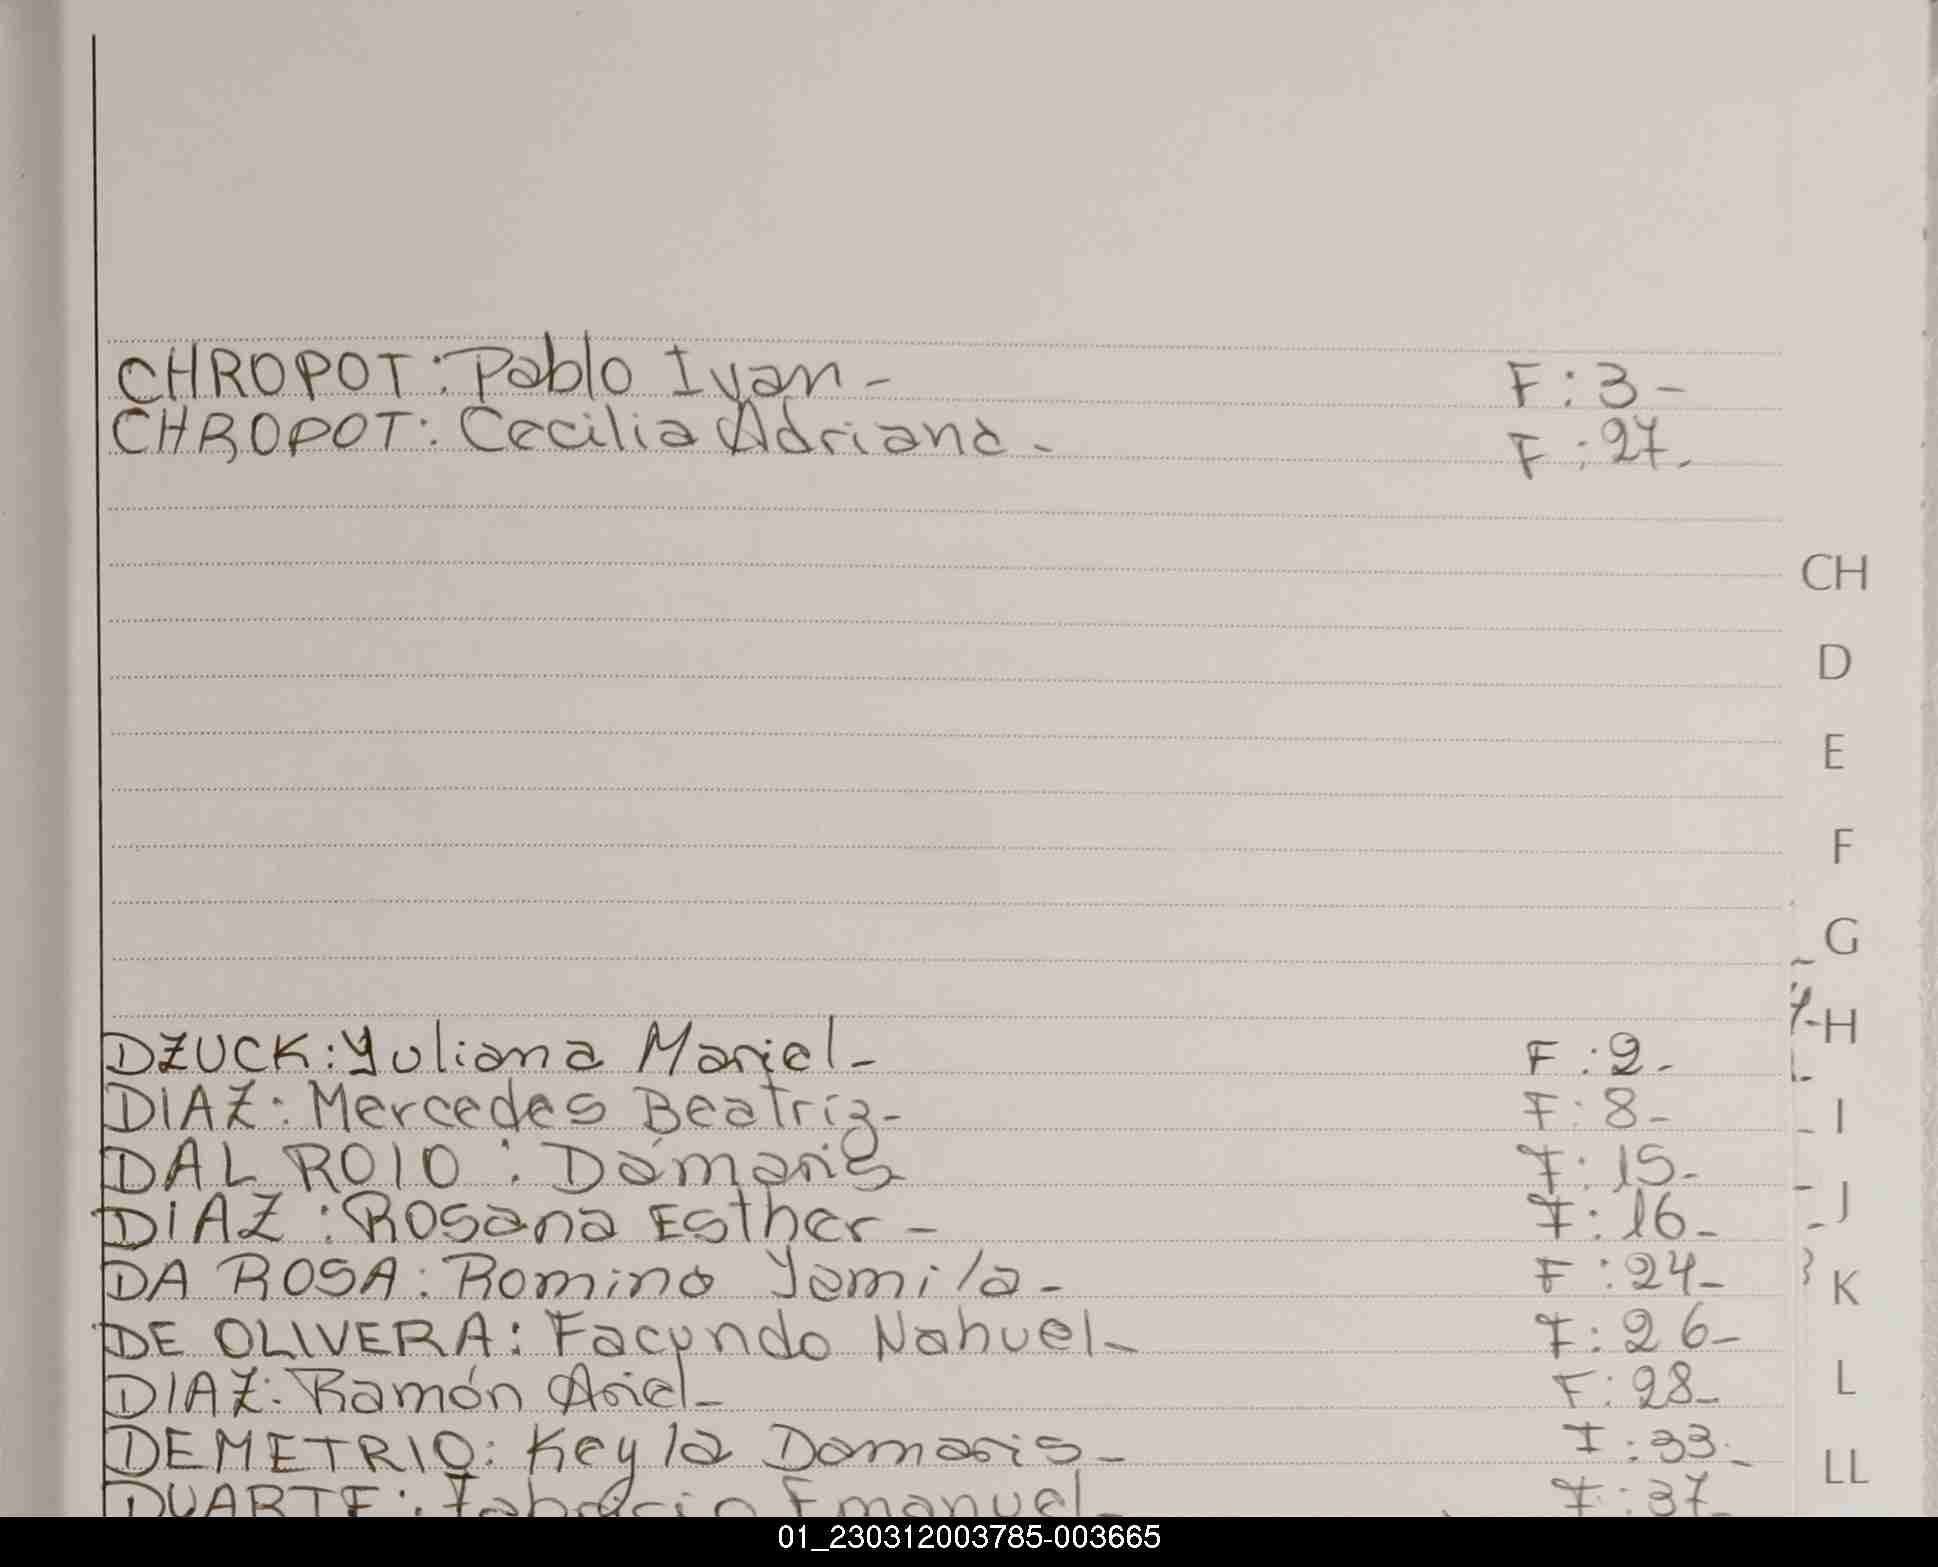 CHROPOT: Pablo Ivan- F: 3-
CHROPOT: Cecilia Adriana- F: 27-
CH
D
E
F
G
H
DZUCK: Yuliana Mariel- F: 2-
DIAZ: Mercedes Beatriz- F: 8-
I
DAL ROIO: Dámaris F: 15-
J
DIAZ: Rosana Esther- F: 16-
DA ROSA: Romina Yamila- F: 24-
K
DE OLIVERA: Facundo Nahuel- F: 26-
DIAZ: Ramón Ariel- F: 28-
L
DEMETRIO: Keyla Damaris- F: 33-
LL
DUARTE: Fabricio Emanuel- F: 37-
01_230312003785-003665